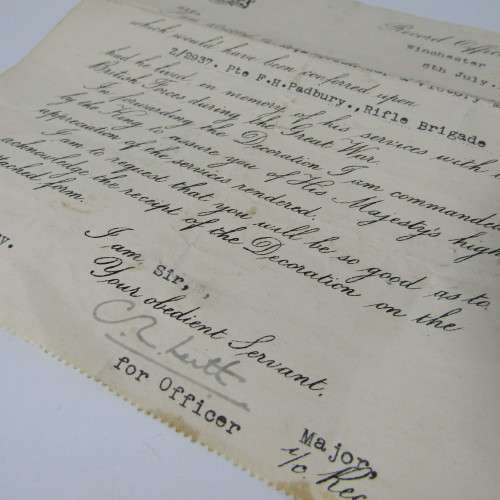 Record Office
Winchester
6th July.
which would have been conferred upon
2/2937. Pte F.H.Padbury., Rifle Brigade
had he lived, in memory of his services with
British Forces during the Great War.
In forwarding the Decoration I am commanded
by the King to assure you of His Majesty's high
appreciation of the services rendered.
I am to request that you will be so good as to
acknowledge the receipt of the Decoration on the
form.
I am, Sir,
Your obedient Servant,
Major,
for Officer i/c Rec